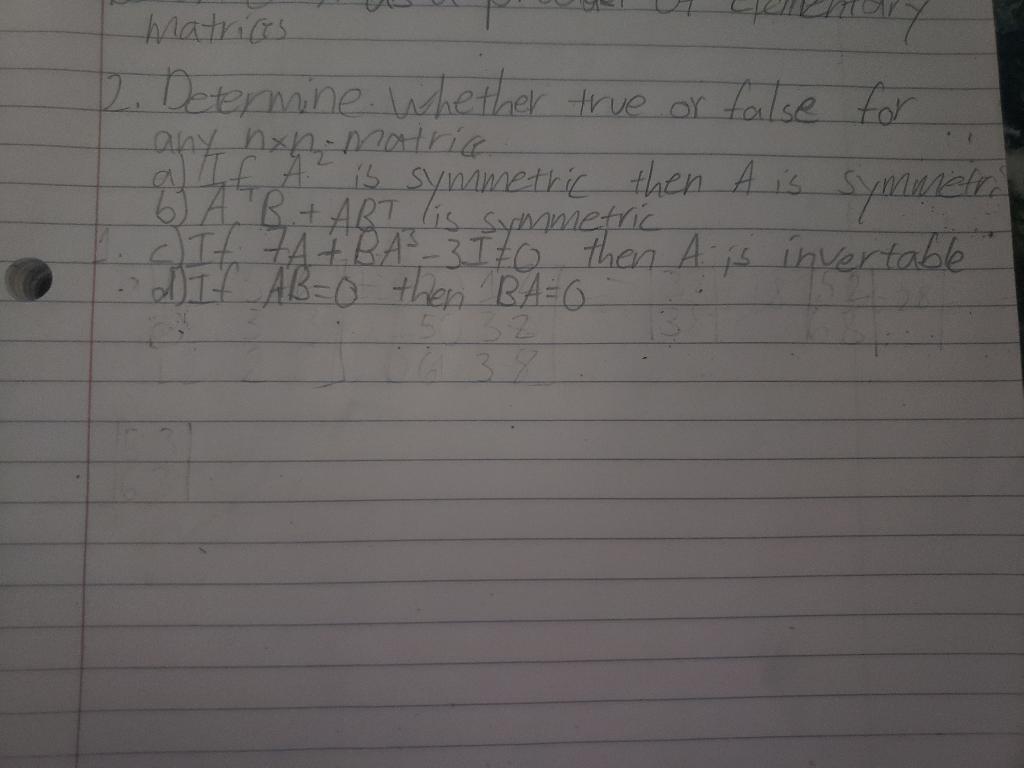 as a product of Elementary
matrices
2. Determine whether true or false for
any nxn matrice
a) If A² is symmetric then A is symmetric
b) AᵀB + ABᵀ is symmetric
c) If 7A + BA³ - 3I = 0 then A is invertable
d) If AB=0 then BA=0